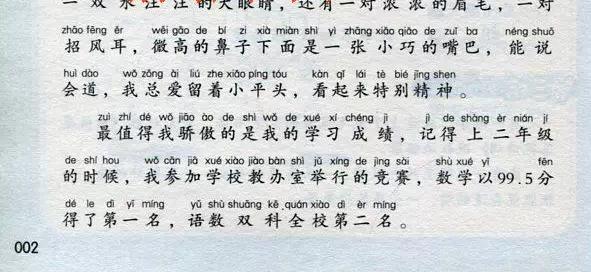 一双水汪汪的大眼睛，还有一对浓浓的眉毛，一对
zhāo fēng ěr wēi gāo de bí zi xià miàn shì yì zhāng xiǎo qiǎo de zuǐ ba néng shuō
招风耳，微高的鼻子下面是一张小巧的嘴巴，能说
huì dào wǒ zǒng ài liú zhe xiǎo píng tóu kàn qǐ lái tè bié jīng shen
会道，我总爱留着小平头，看起来特别精神。
zuì zhí dé wǒ jiāo ào de shì wǒ de xué xí chéng jì jì de shàng èr nián jí
最值得我骄傲的是我的学习成绩，记得上二年级
de shí hou wǒ cān jiā xué xiào jiào bàn shì jǔ xíng de jìng sài shù xué yǐ fēn
的时候，我参加学校教办室举行的竞赛，数学以99.5分
dé le dì yī míng yǔ shù shuāng kē quán xiào dì èr míng
得了第一名，语数双科全校第二名。
002